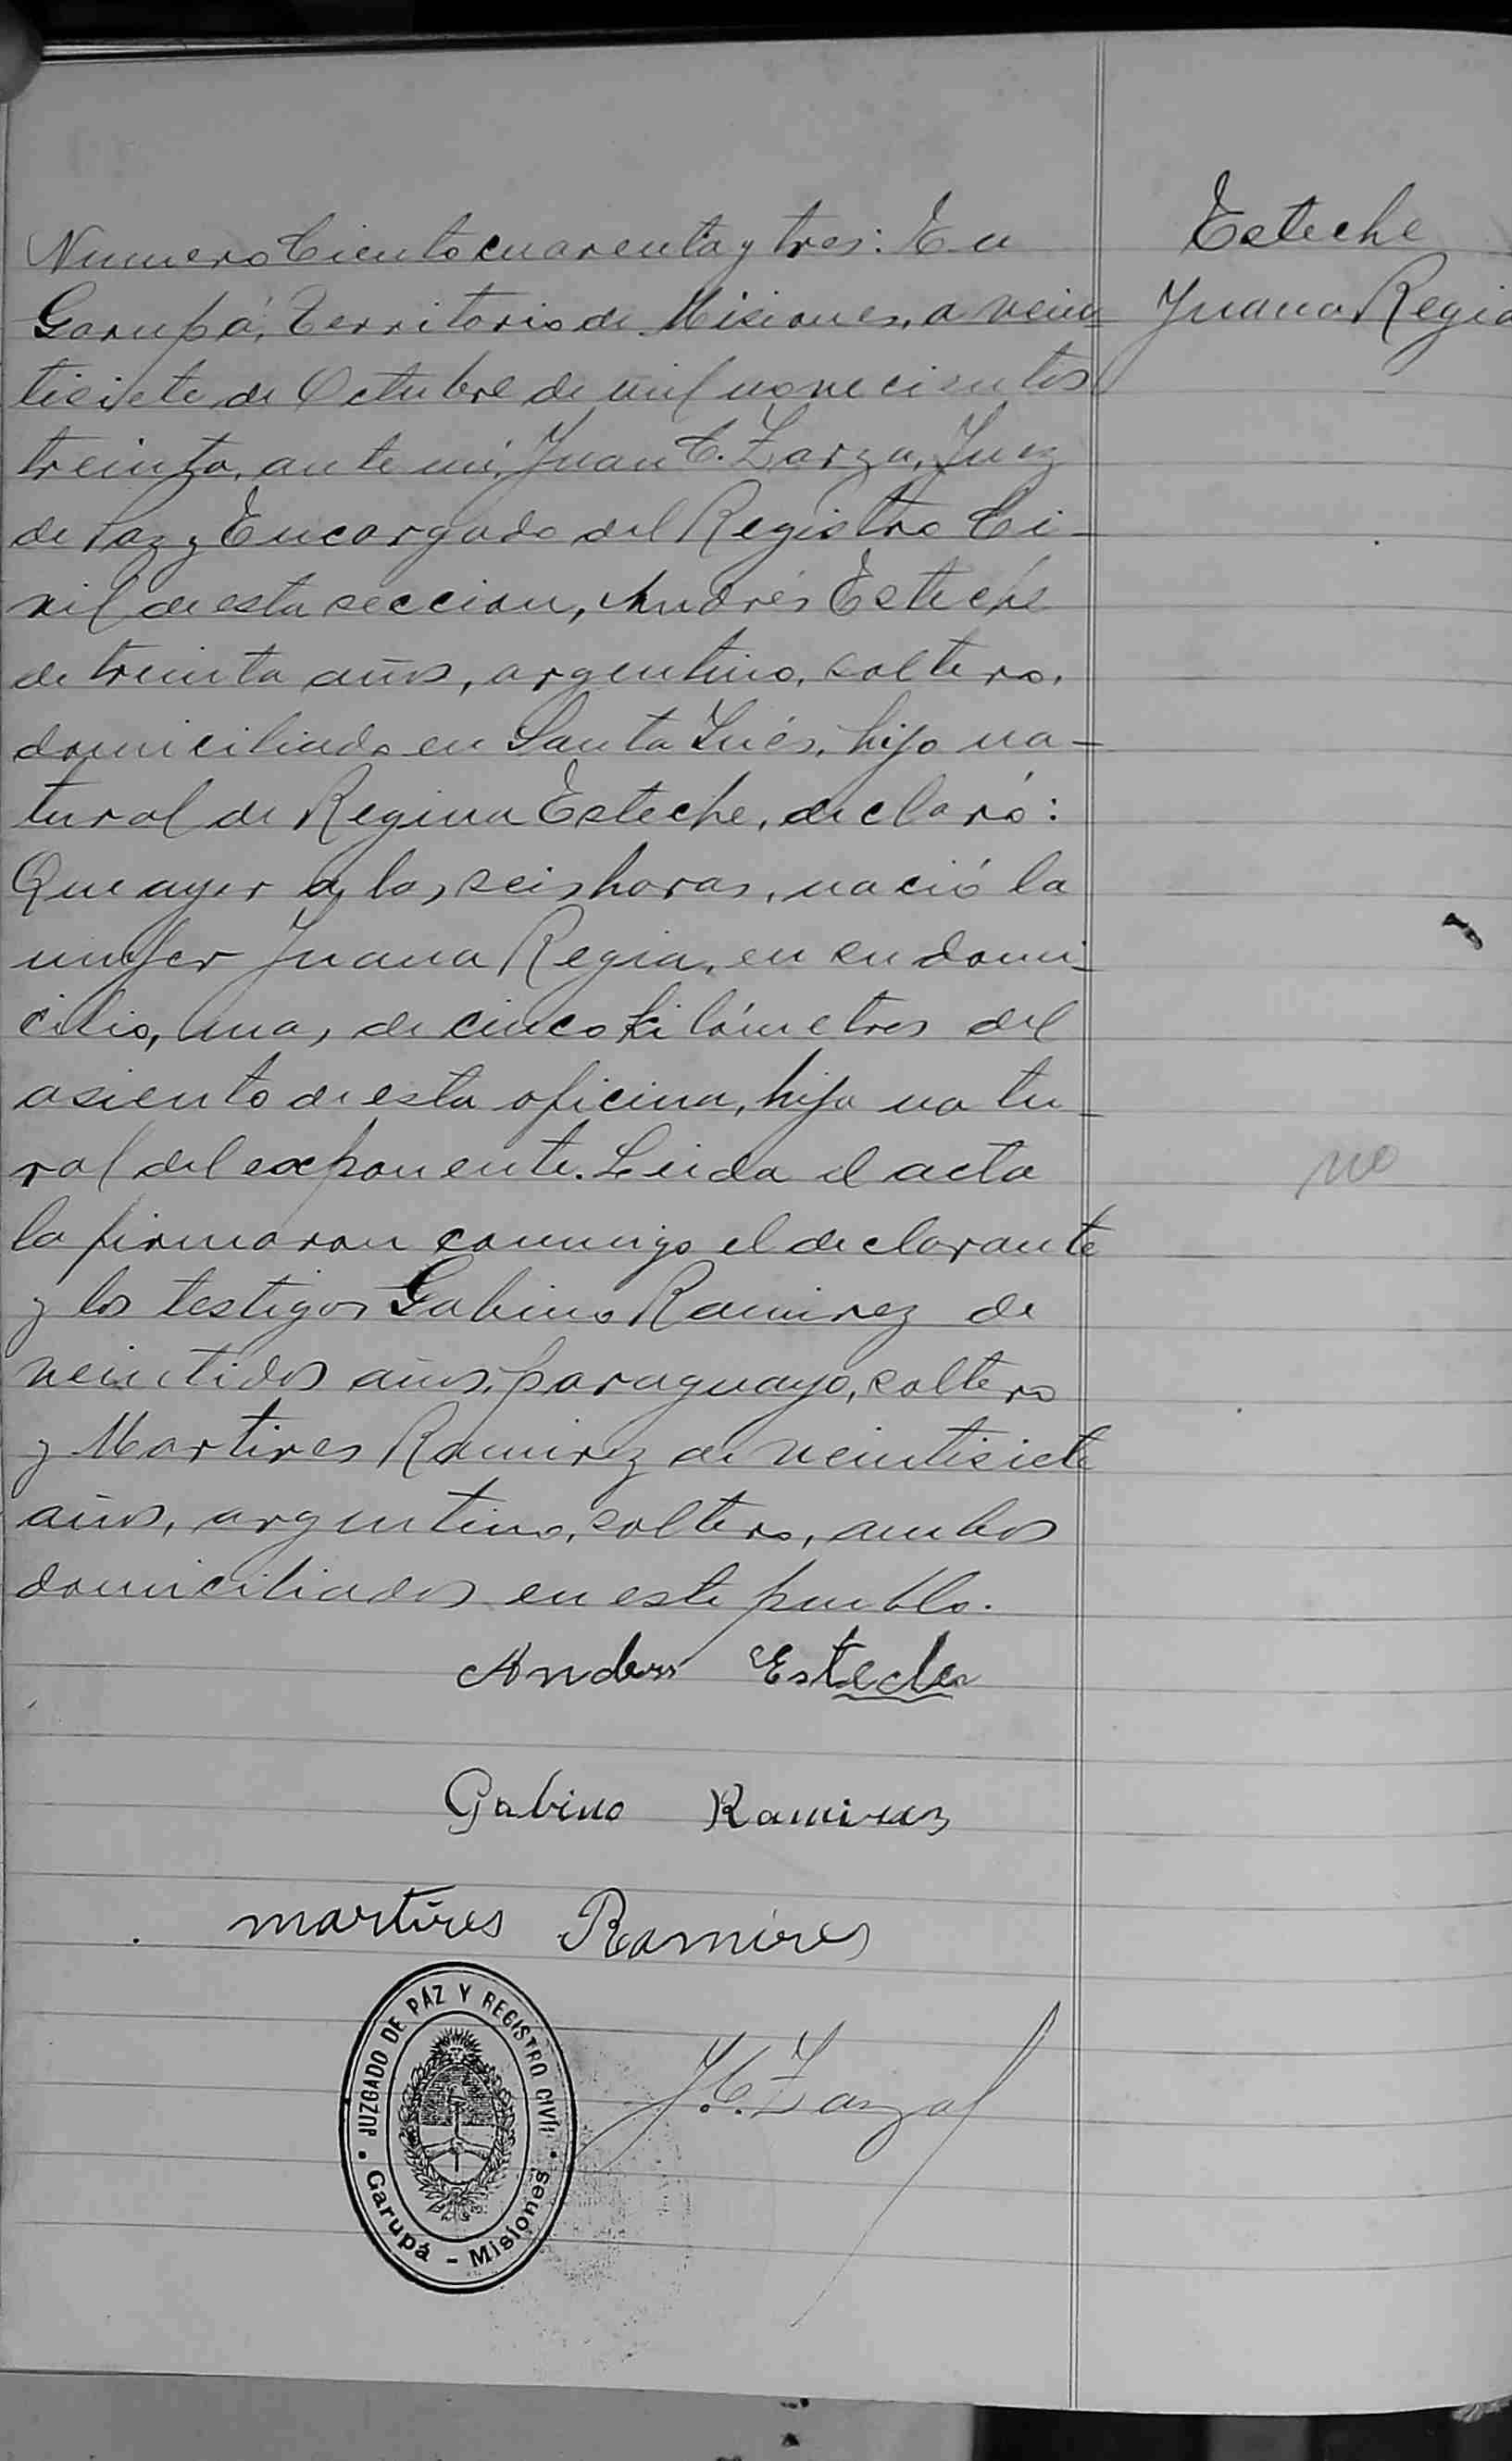 Esteche
Juana Regia
Numero Ciento cuarenta y tres: En
Garupá, Territorio de Misiones, a vein-
tisiete de Octubre de mil novecientos
treinta, ante mi, Juan C. Zarza, Juez
de Paz y Encargado del Registro Ci-
vil de esta seccion, Andrés Esteche
de treinta años, argentino, soltero,
domiciliado en Santa Inés, hijo na-
tural de Regina Esteche, declaró:
Que ayer a las seis horas, nació la
mujer Juana Regia, en su domi-
cilio, mas de cinco kilómetros del
asiento de esta oficina, hija natu-
ral del exponente. Leida el acta
la firmaron conmigo el declarante
y los testigos Gabino Ramirez de
veintidos años, paraguayo, soltero
y Martires Ramirez de veintisiete
años, argentino, soltero, ambos
domiciliados en este pueblo.
no
Andres Esteche
Gabino Ramirez
martires Ramires
J. C. Zarza
JUZGADO DE PAZ Y REGISTRO CIVIL
Garupá - Misiones